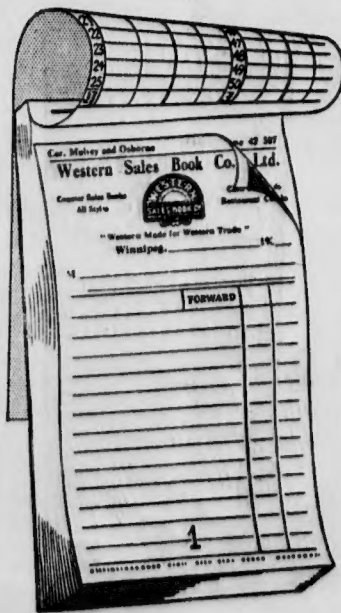 22
23
24
25
47
48
49
50
Cor. Mulvey and Osborne
42 507
Western Sales Book Co. Ltd.
Counter Sales Books
All Styles
WESTERN
SALES BOOK CO
Restaurant
"Western Made for Western Trade"
Winnipeg, 19
M
FORWARD
1